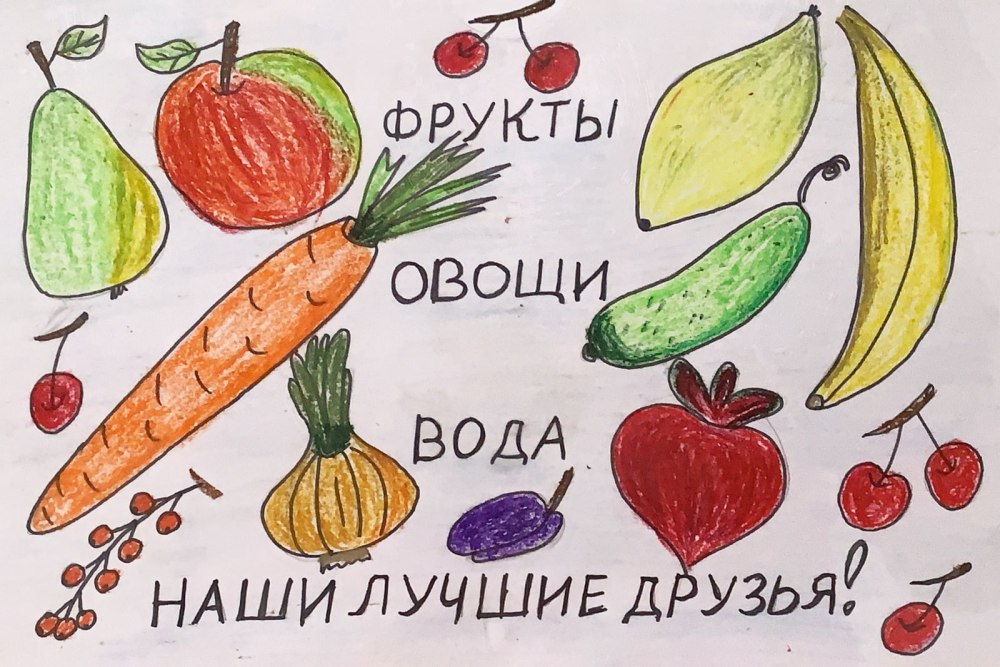 ФРУКТЫ
ОВОЩИ
ВОДА
НАШИ ЛУЧШИЕ ДРУЗЬЯ!